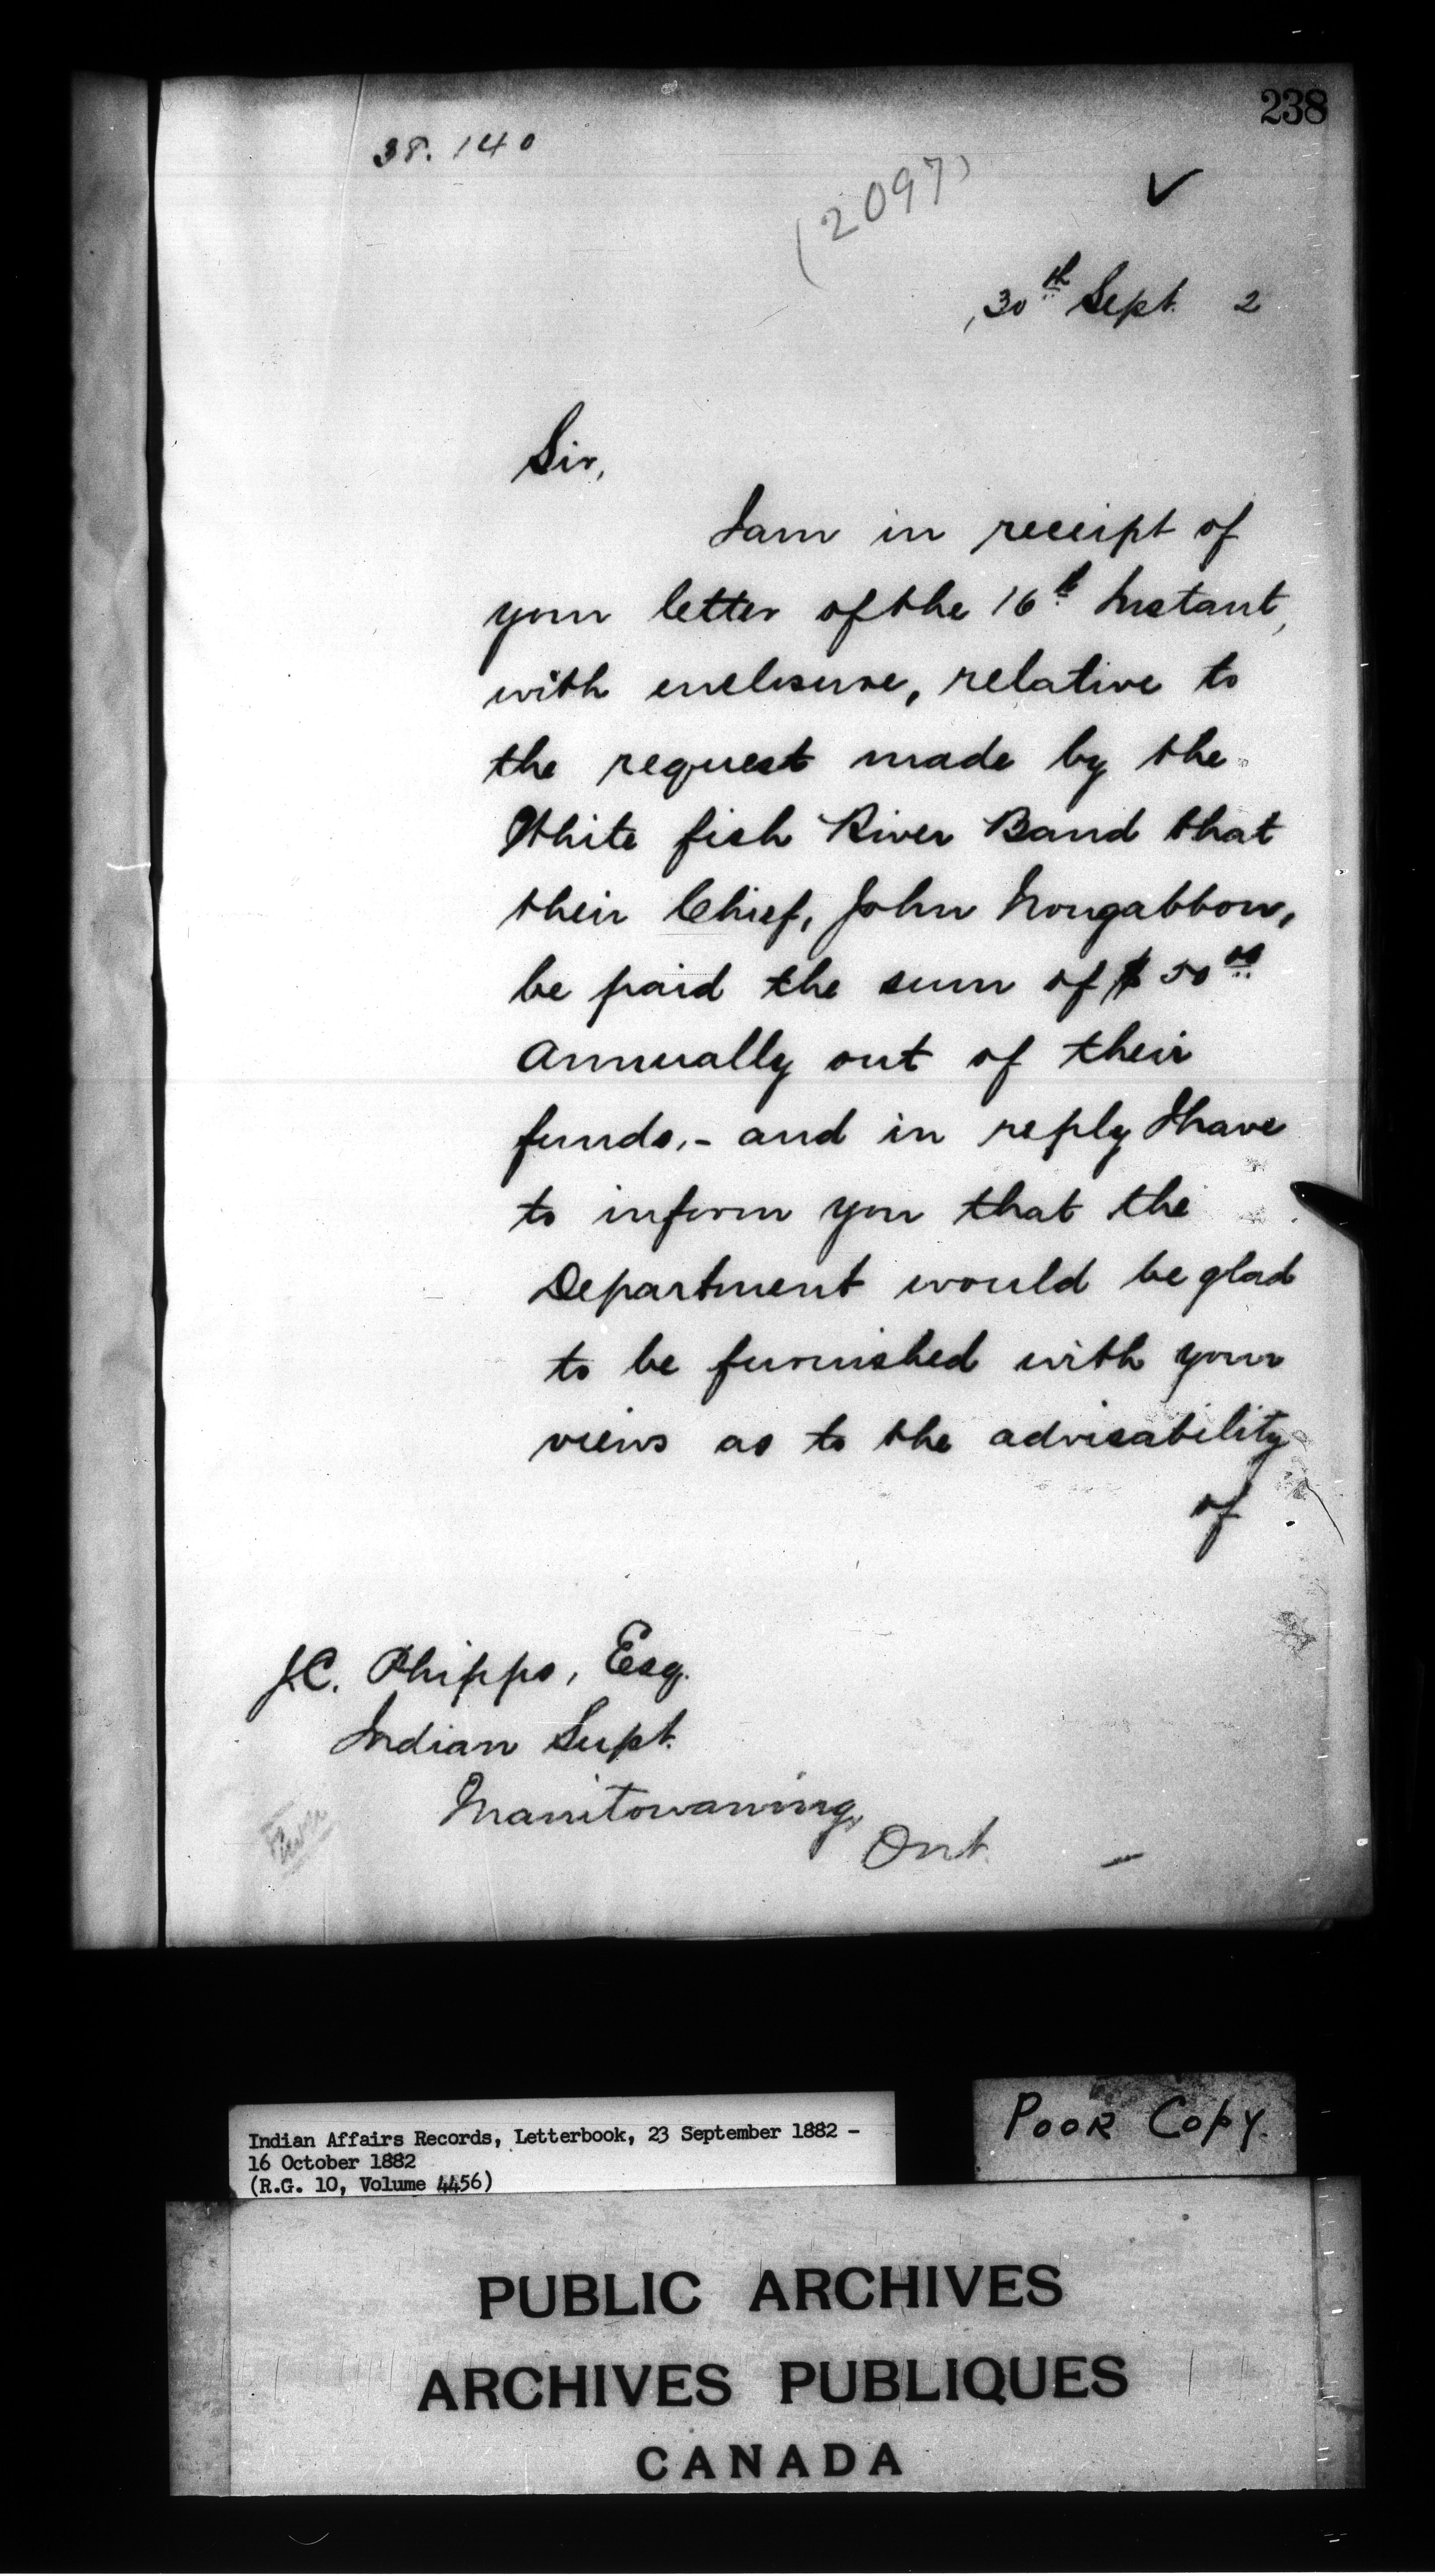 238
38.140
(2097)
30th Sept. 2
Sir,
I am in receipt of
your letter of the 16th Instant,
with enclosure, relative to
the request made by the
White fish River Band that
their Chief, John Nongabbow,
be paid the sum of $50 00
Annually out of their
funds,- and in reply I have
to inform you that the
Department would be glad
to be furnished with your
views as to the advisability
of
J.C. Phipps, Esq.
Indian Supt.
Manitowaning,
Ont.
Indian Affairs Records, Letterbook, 23 September 1882 -
16 October 1882
(R.G. 10, Volume 4456)
POOR COPY.
PUBLIC ARCHIVES
ARCHIVES PUBLIQUES
CANADA